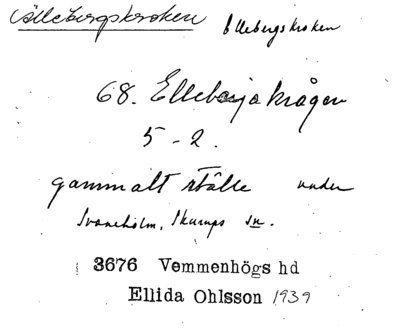 Ellebergskroken Ellebergskroken
68. Elleborjakrågen
5-2.
gammalt ställe under
Svaneholm, Skurups sn.
3676 Vemmenhögs hd
Ellida Ohlsson 1939